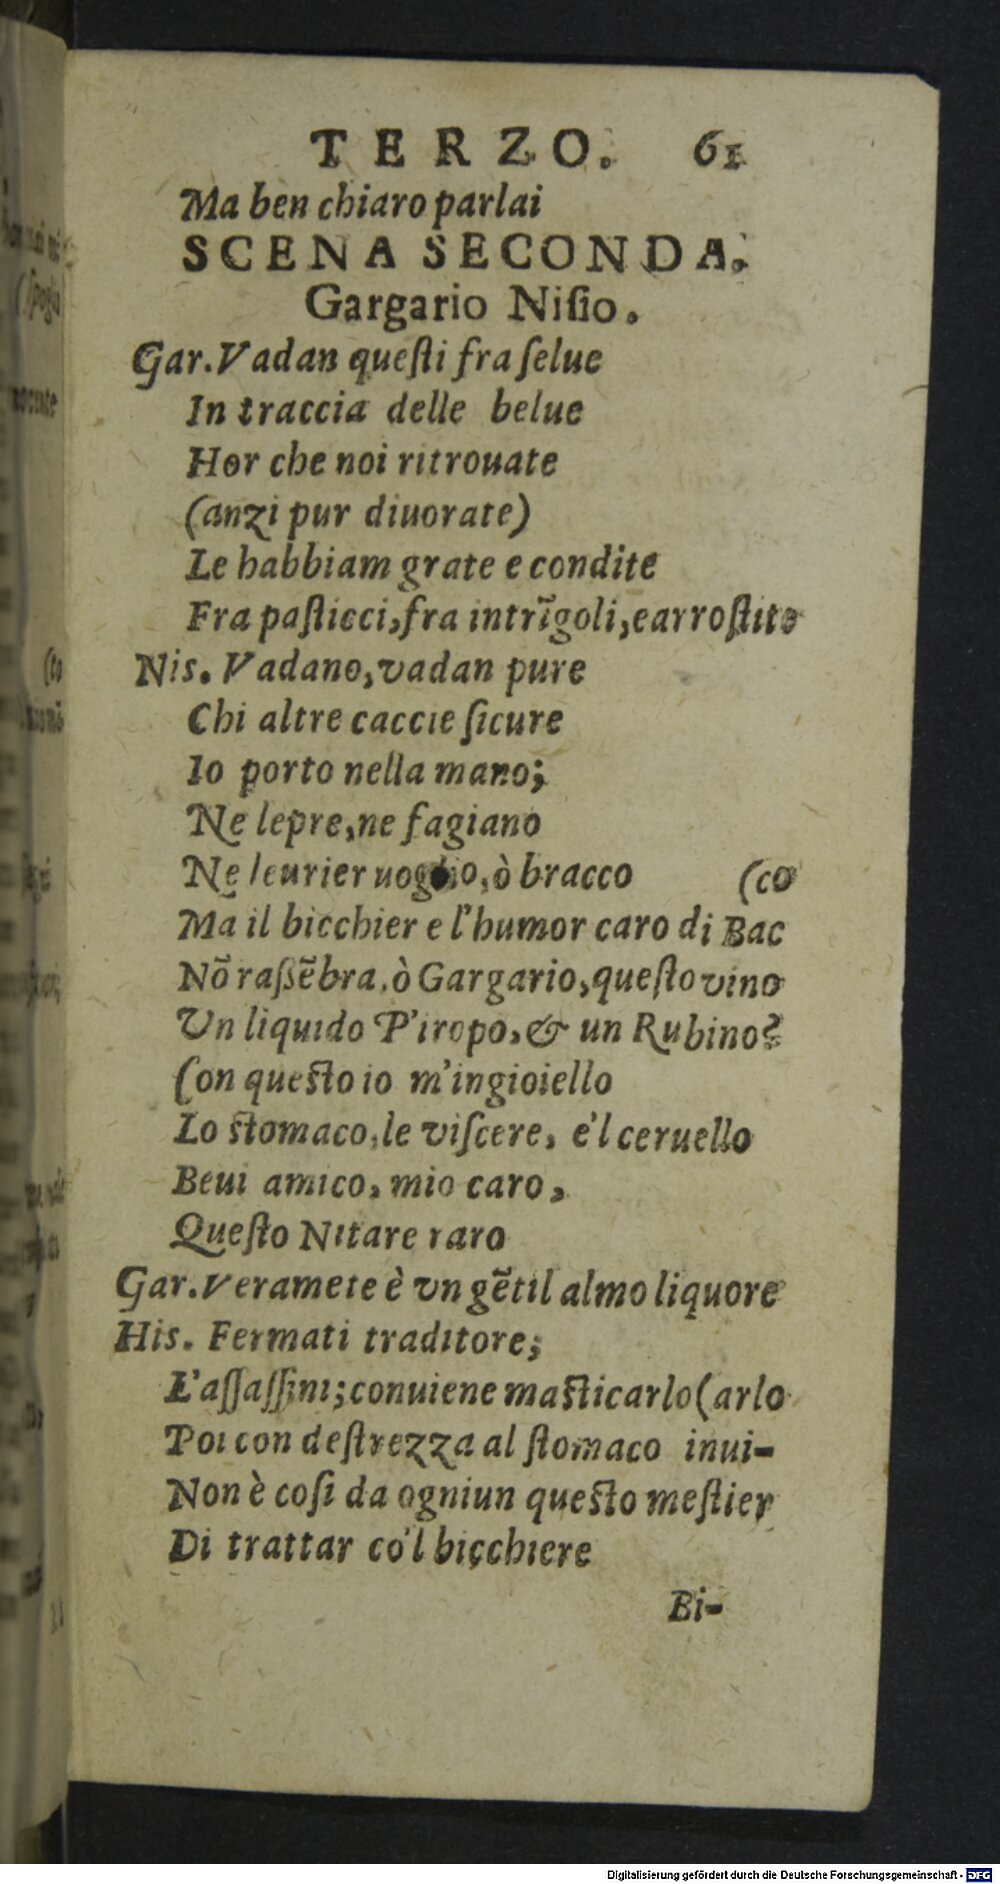 TERZO. 61
Ma ben chiaro parlai
SCENA SECONDA.
Gargario Niſio.
Gar. Vadan queſti fra ſelue
In traccia delle belue
Hor che noi ritrouate
(anzi pur diuorate)
Le habbiam grate e condite
Fra paſticci, fra intrĩgoli, e arroſtite
Nis. Vadano, vadan pure
Chi altre caccie ſicure
Io porto nella mano;
Ne lepre, ne fagiano
Ne leurier uoglio, ò bracco (co
Ma il bicchier e l'humor caro di Bac
Nõ raſsẽbra, ò Gargario, queſto vino
Vn liquido P'iropo, & un Rubino?
Con queſto io m'ingioiello
Lo ſtomaco, le viſcere, e'l ceruello
Beui amico, mio caro,
Queſto Nitare raro
Gar. Veramete è vn gẽtil almo liquore
His. Fermati traditore;
L'aſſaſſini; conuiene maſticarlo (arlo
Poi con deſtrezza al ſtomaco inui-
Non è coſi da ogniun queſto meſtier
Di trattar co'l bicchiere
Bi-
Digitalisierung gefördert durch die Deutsche Forschungsgemeinschaft - DFG